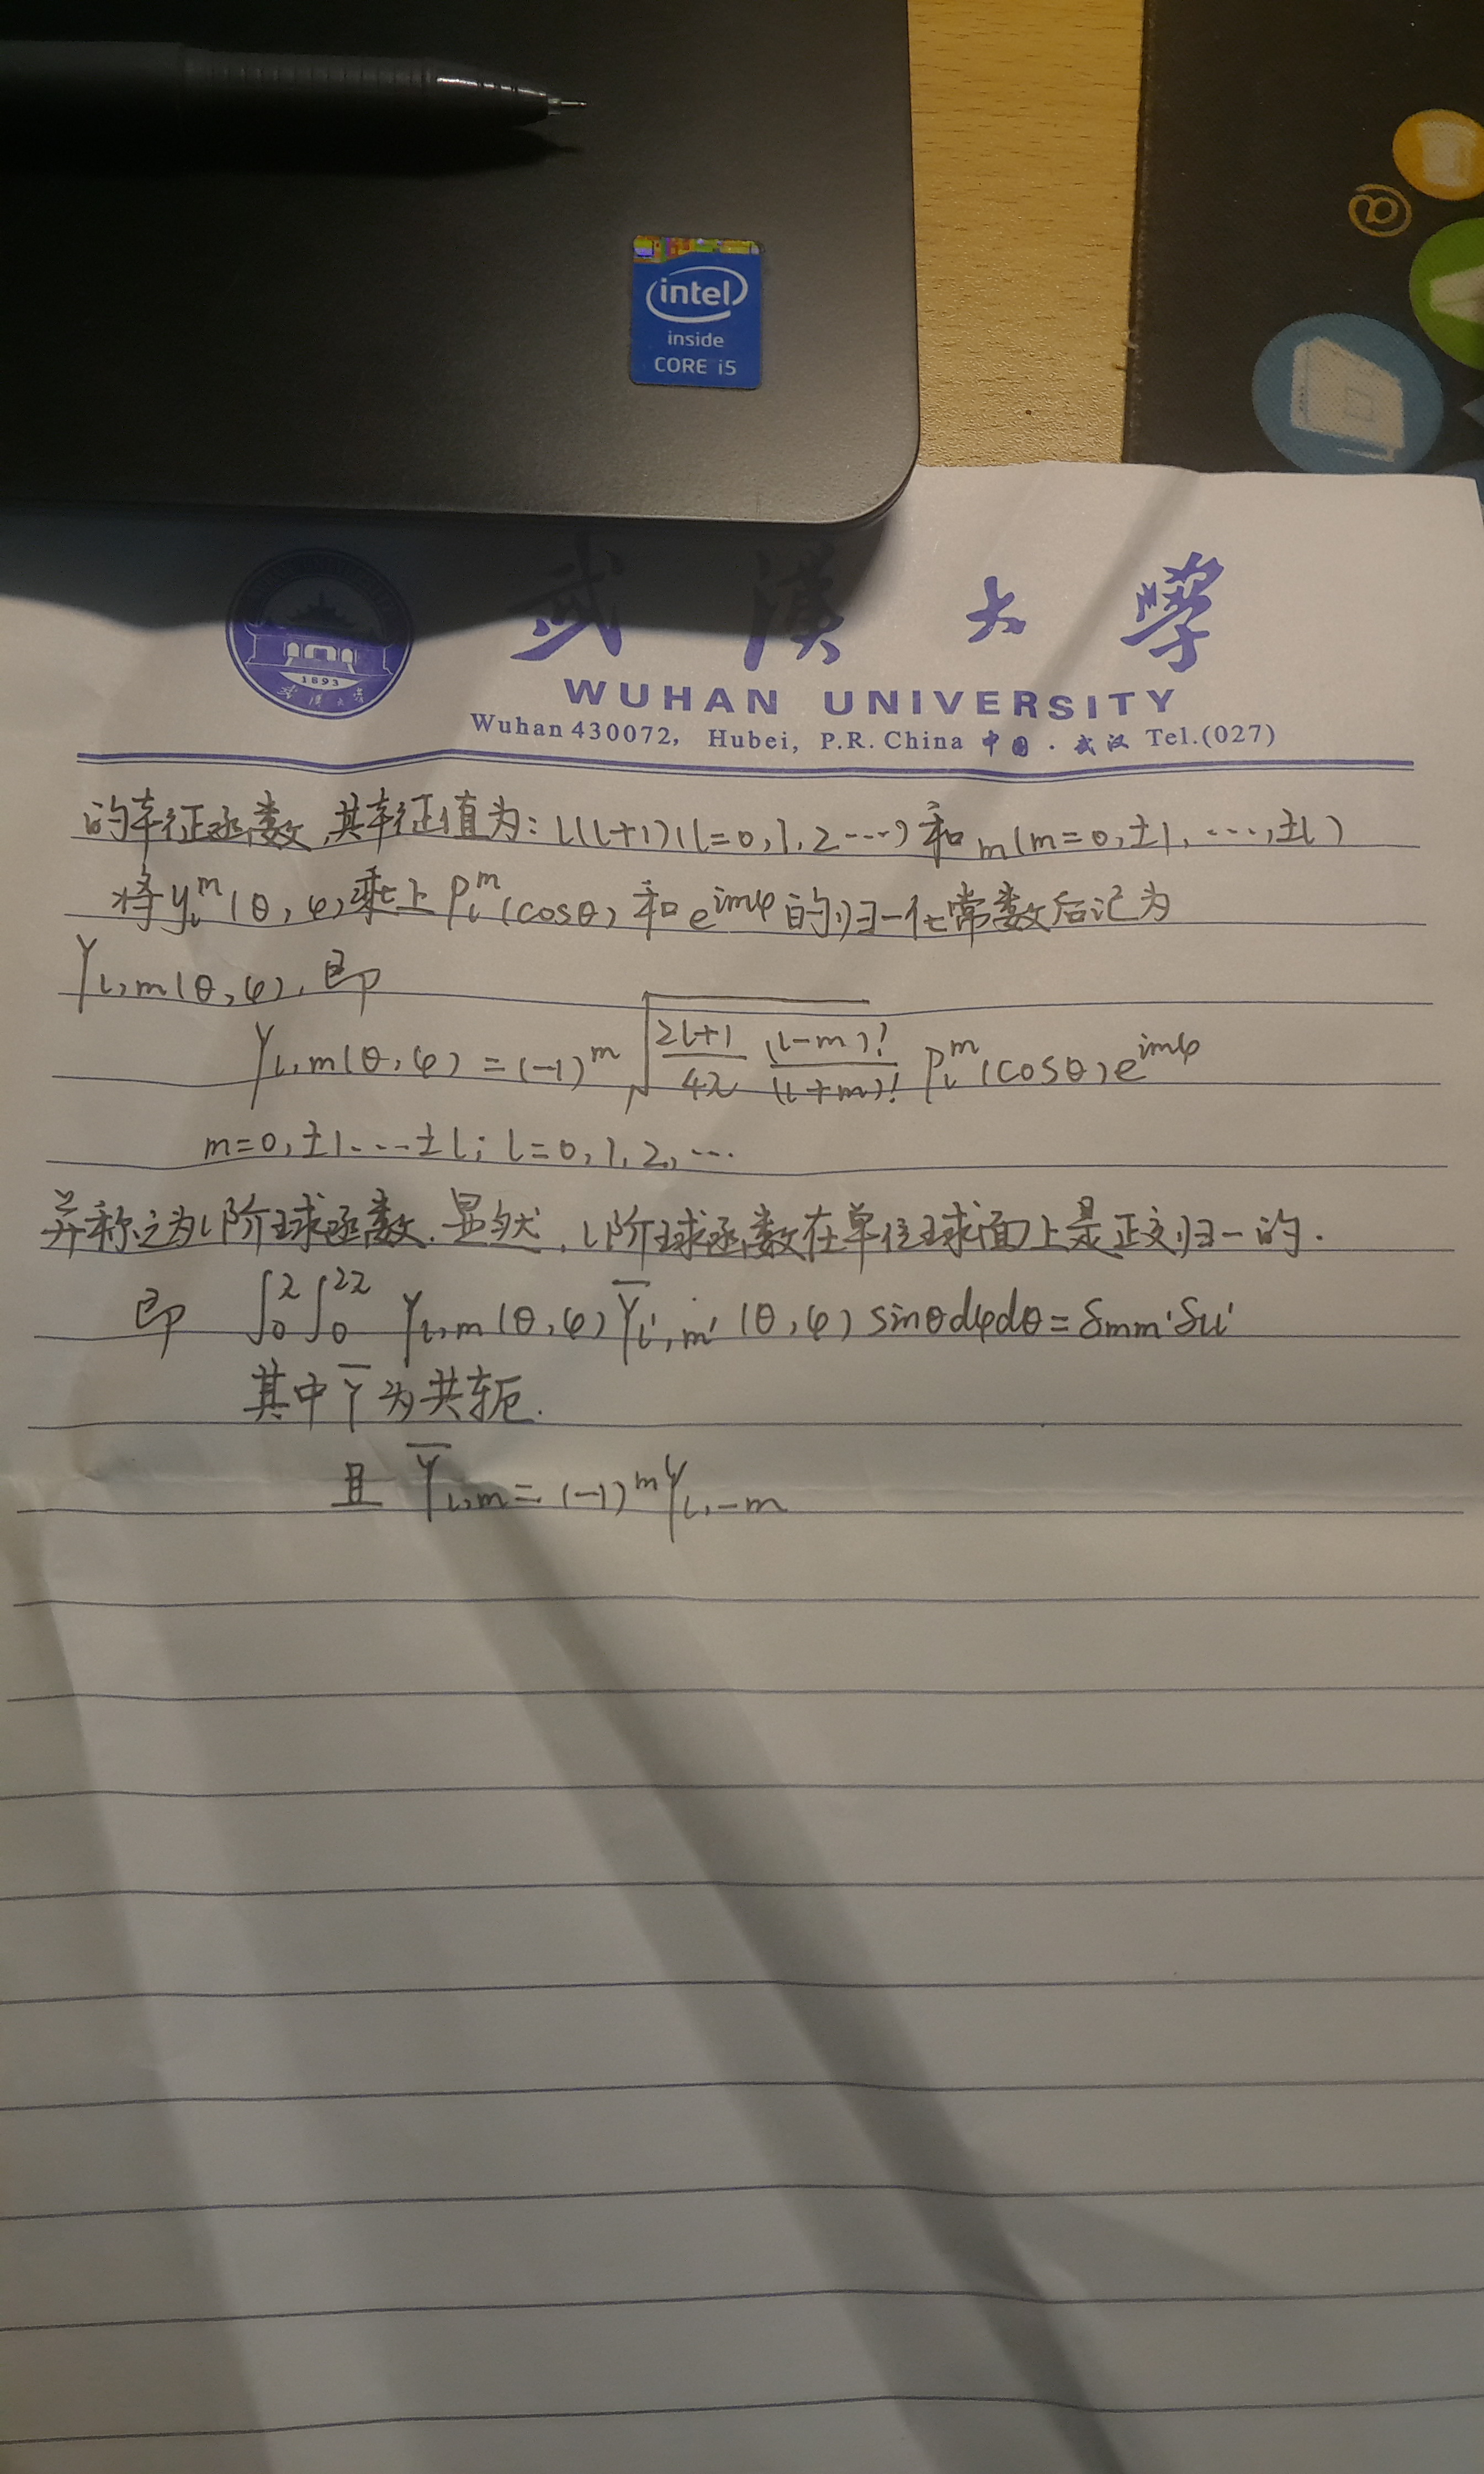 intel
inside
CORE i5
武汉大学
1893
武汉大学
WUHAN UNIVERSITY
Wuhan 430072, Hubei, P.R. China 中国·武汉 Tel.(027)
的本征函数,其本征值为: l(l+1)(l=0,1,2…) 和 m(m=0,±1,…,±l)
将 y_l^m(θ,φ) 乘上 P_l^m(cosθ) 和 e^{imφ} 的归一化常数后记为
Y_{l,m}(θ,φ), 即
Y_{l,m}(θ,φ) = (-1)^m √((2l+1)/(4π) (l-m)!/(l+m)!) P_l^m(cosθ)e^{imφ}
m=0,±1…±l; l=0,1,2,…
并称之为l阶球函数.显然,l阶球函数在单位球面上是正交归一的.
即 ∫_0^π∫_0^{2π} Y_{l,m}(θ,φ) Ȳ_{l',m'}(θ,φ) sinθdφdθ = δ_{mm'}δ_{ll'}
其中 Ȳ 为共轭.
且 Ȳ_{l,m} = (-1)^m Y_{l,-m}